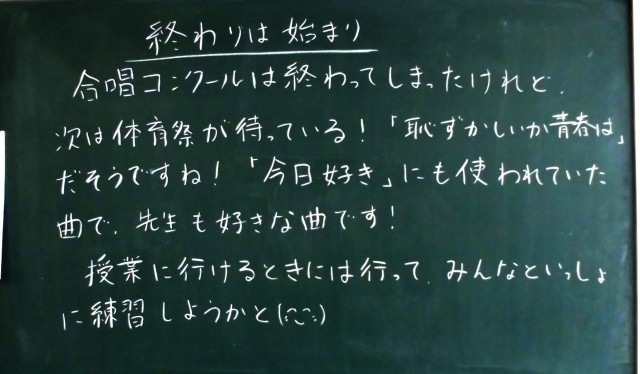 終わりは始まり
合唱コンクールは終わってしまったけれど、
次は体育祭が待っている!「恥ずかしいか青春は」
だそうですね!「今日好き」にも使われていた
曲で、先生も好きな曲です!
授業に行けるときには行って、みんなといっしょ
に練習しようかと(¨◡¨)